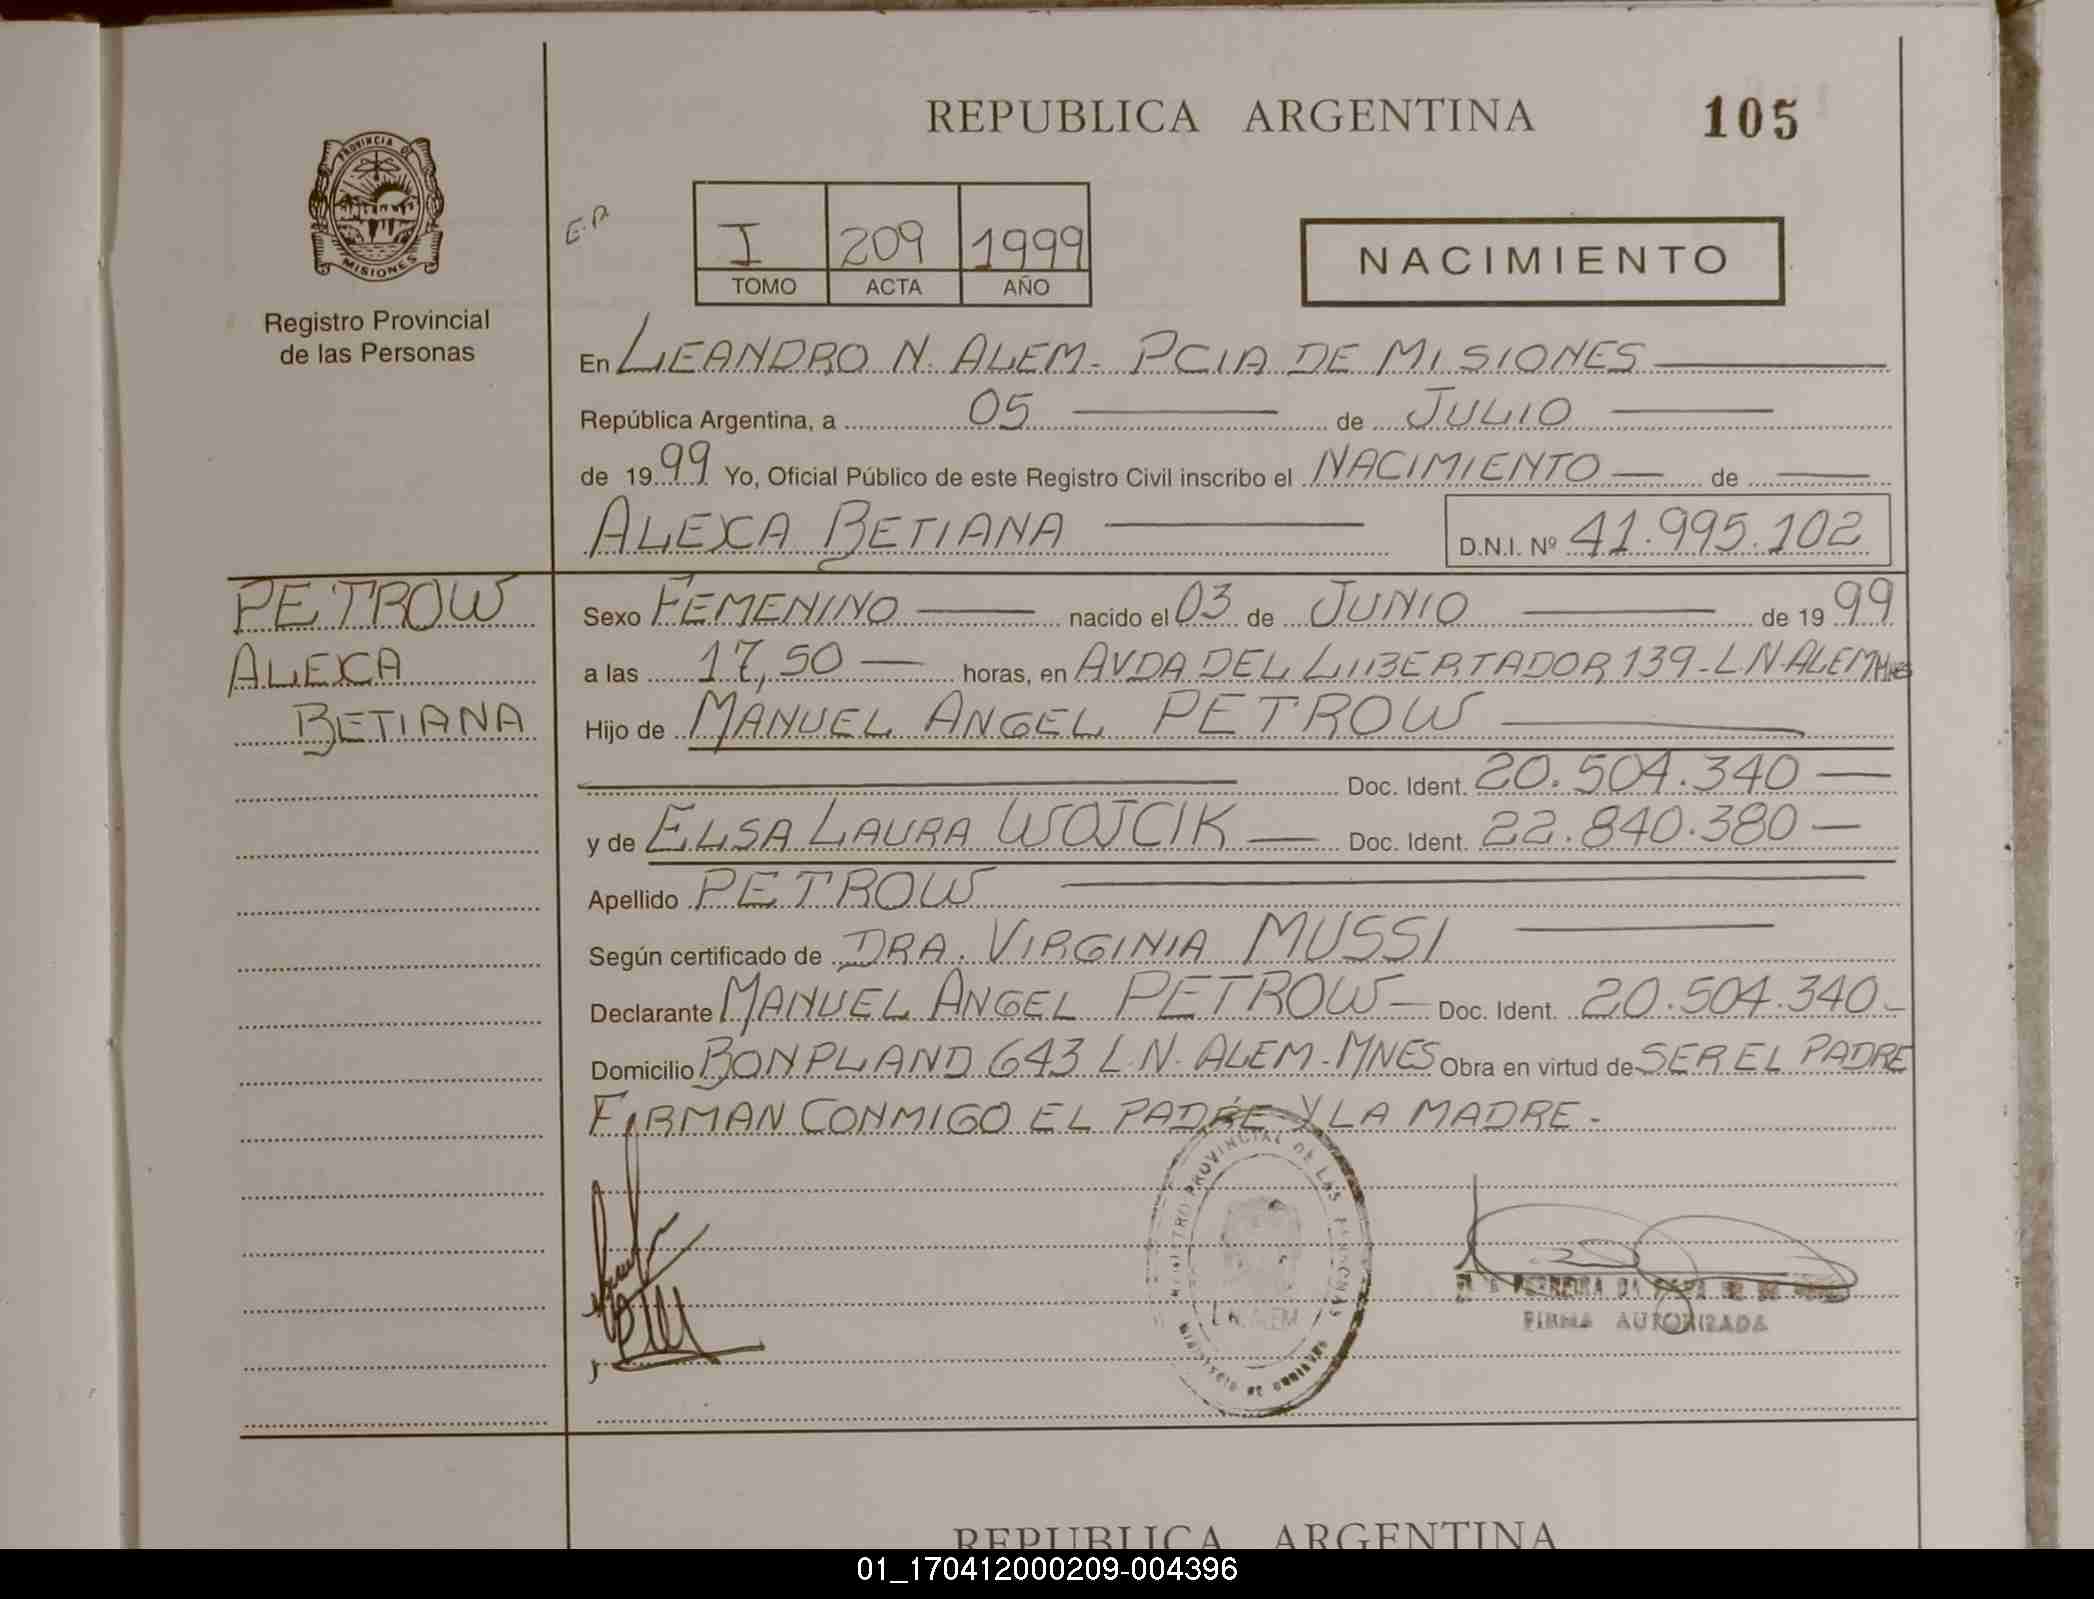 REPUBLICA ARGENTINA
105
PROVINCIA DE
MISIONES
Registro Provincial
de las Personas
E.P.
I 209 1999
TOMO ACTA AÑO
NACIMIENTO
En LEANDRO N. ALEM - PCIA DE MISIONES
República Argentina, a 05 de JULIO
de 1999 Yo, Oficial Público de este Registro Civil inscribo el NACIMIENTO de
ALEXA BETIANA
D.N.I. Nº 41.995.102
PETROW
ALEXA
BETIANA
Sexo FEMENINO nacido el 03 de JUNIO de 1999
a las 17,50 horas, en AVDA DEL LIBERTADOR 139 - L N. ALEM Mnes
Hijo de MANUEL ANGEL PETROW
Doc. Ident. 20.504.340
y de ELSA LAURA WOJCIK Doc. Ident. 22.840.380
Apellido PETROW
Según certificado de DRA. VIRGINIA MUSSI
Declarante MANUEL ANGEL PETROW Doc. Ident. 20.504.340
Domicilio BONPLAND 643 L.N. ALEM - MNES Obra en virtud de SER EL PADRE
FIRMAN CONMIGO EL PADRE Y LA MADRE -
REGISTRO PROVINCIAL DE LAS PERSONAS
L. N. ALEM
MINISTERIO DE GOBIERNO
FIRMA AUTORIZADA
REPUBLICA ARGENTINA
01_170412000209-004396